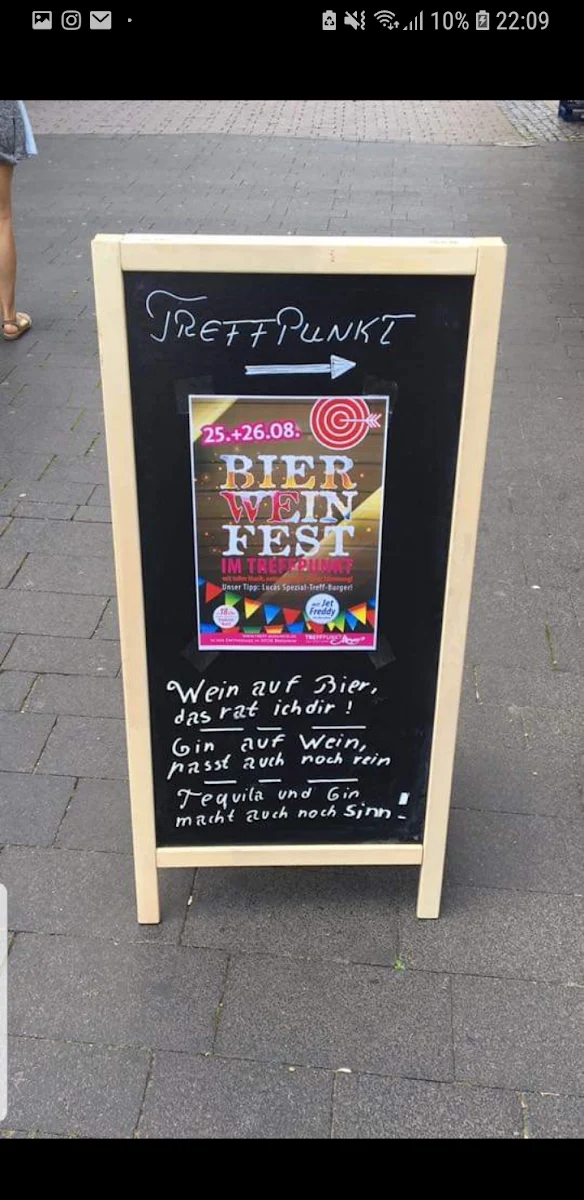 10% 22:09
TREFFPUNKT
25.+26.08.
BIER
WEIN
FEST
IM TREFFPUNKT
Unser Tipp: Lucas Spezial-Treff-Burger!
Jet
Freddy
TREFFPUNKT
Wein auf Bier,
das rat ich dir !
Gin auf Wein,
passt auch noch rein
Tequila und Gin
macht auch noch Sinn !